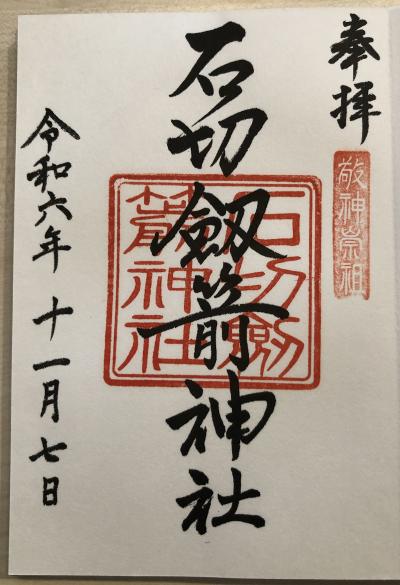 奉拝
敬神崇祖
石切劔箭神社
石切劔
箭神社
令和六年 十一月七日